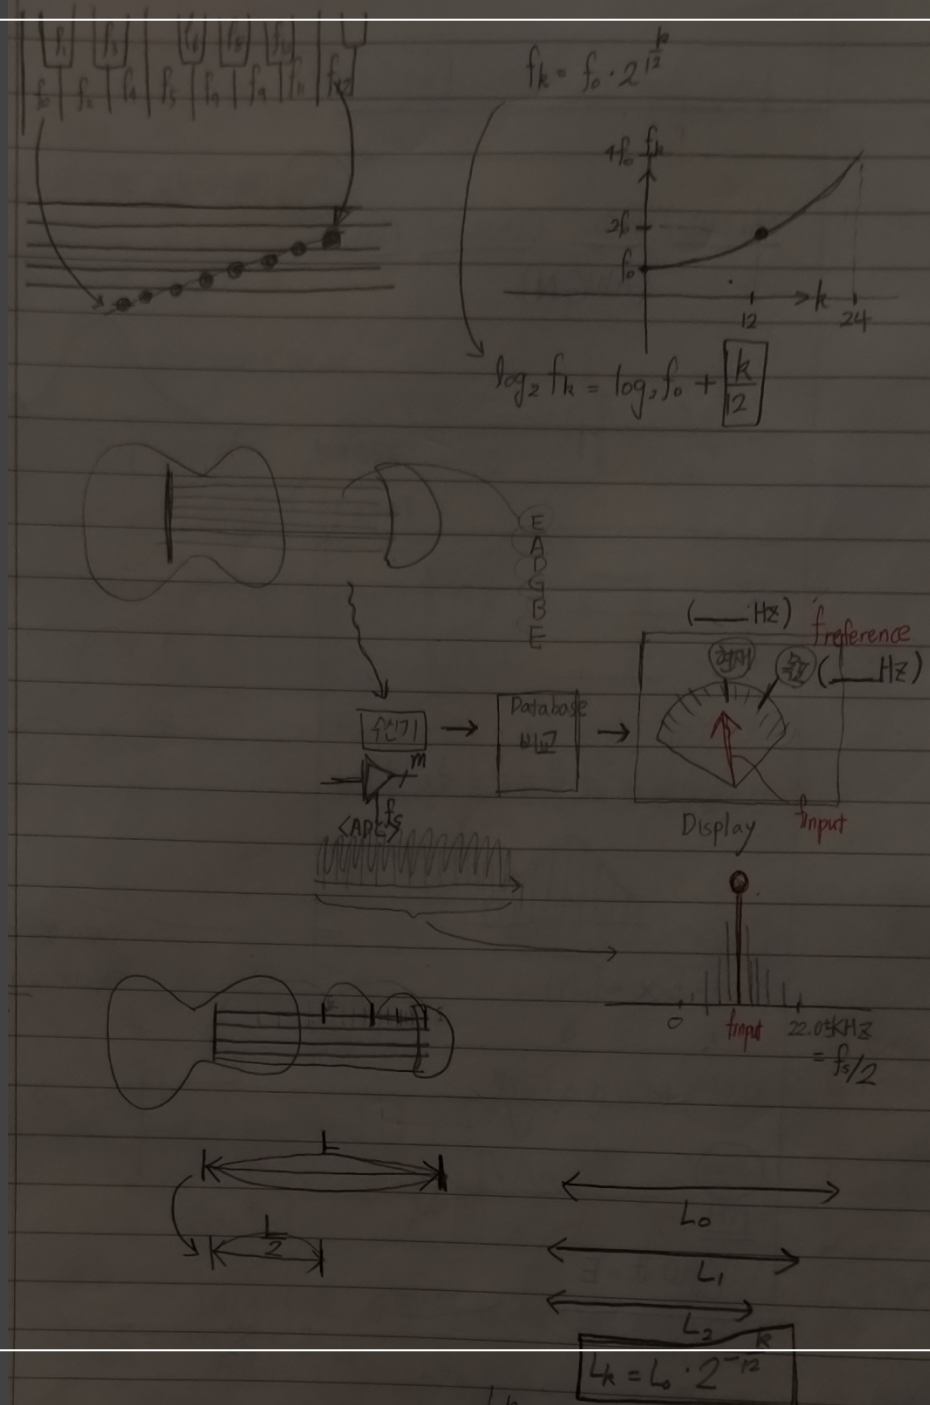 f₁ f₃ f₆ f₈ f₁₀
f₀ f₂ f₄ f₅ f₉ f₁₁ f₁₂
fk = f₀ · 2^(k/12)
4f₀ fk
2f₀
f₀
12 k 24
log₂ fk = log₂ f₀ + k/12
E
A
D
G
B
E
(___Hz) freference
현재 목표 (___Hz)
수신기 → Database 비교 →
m
fs
<ADC>
Display finput
0 finput 22.05KHz
= fs/2
L
L/2
L₀
L₁
L₂
Lk = L₀ · 2^(-k/12)